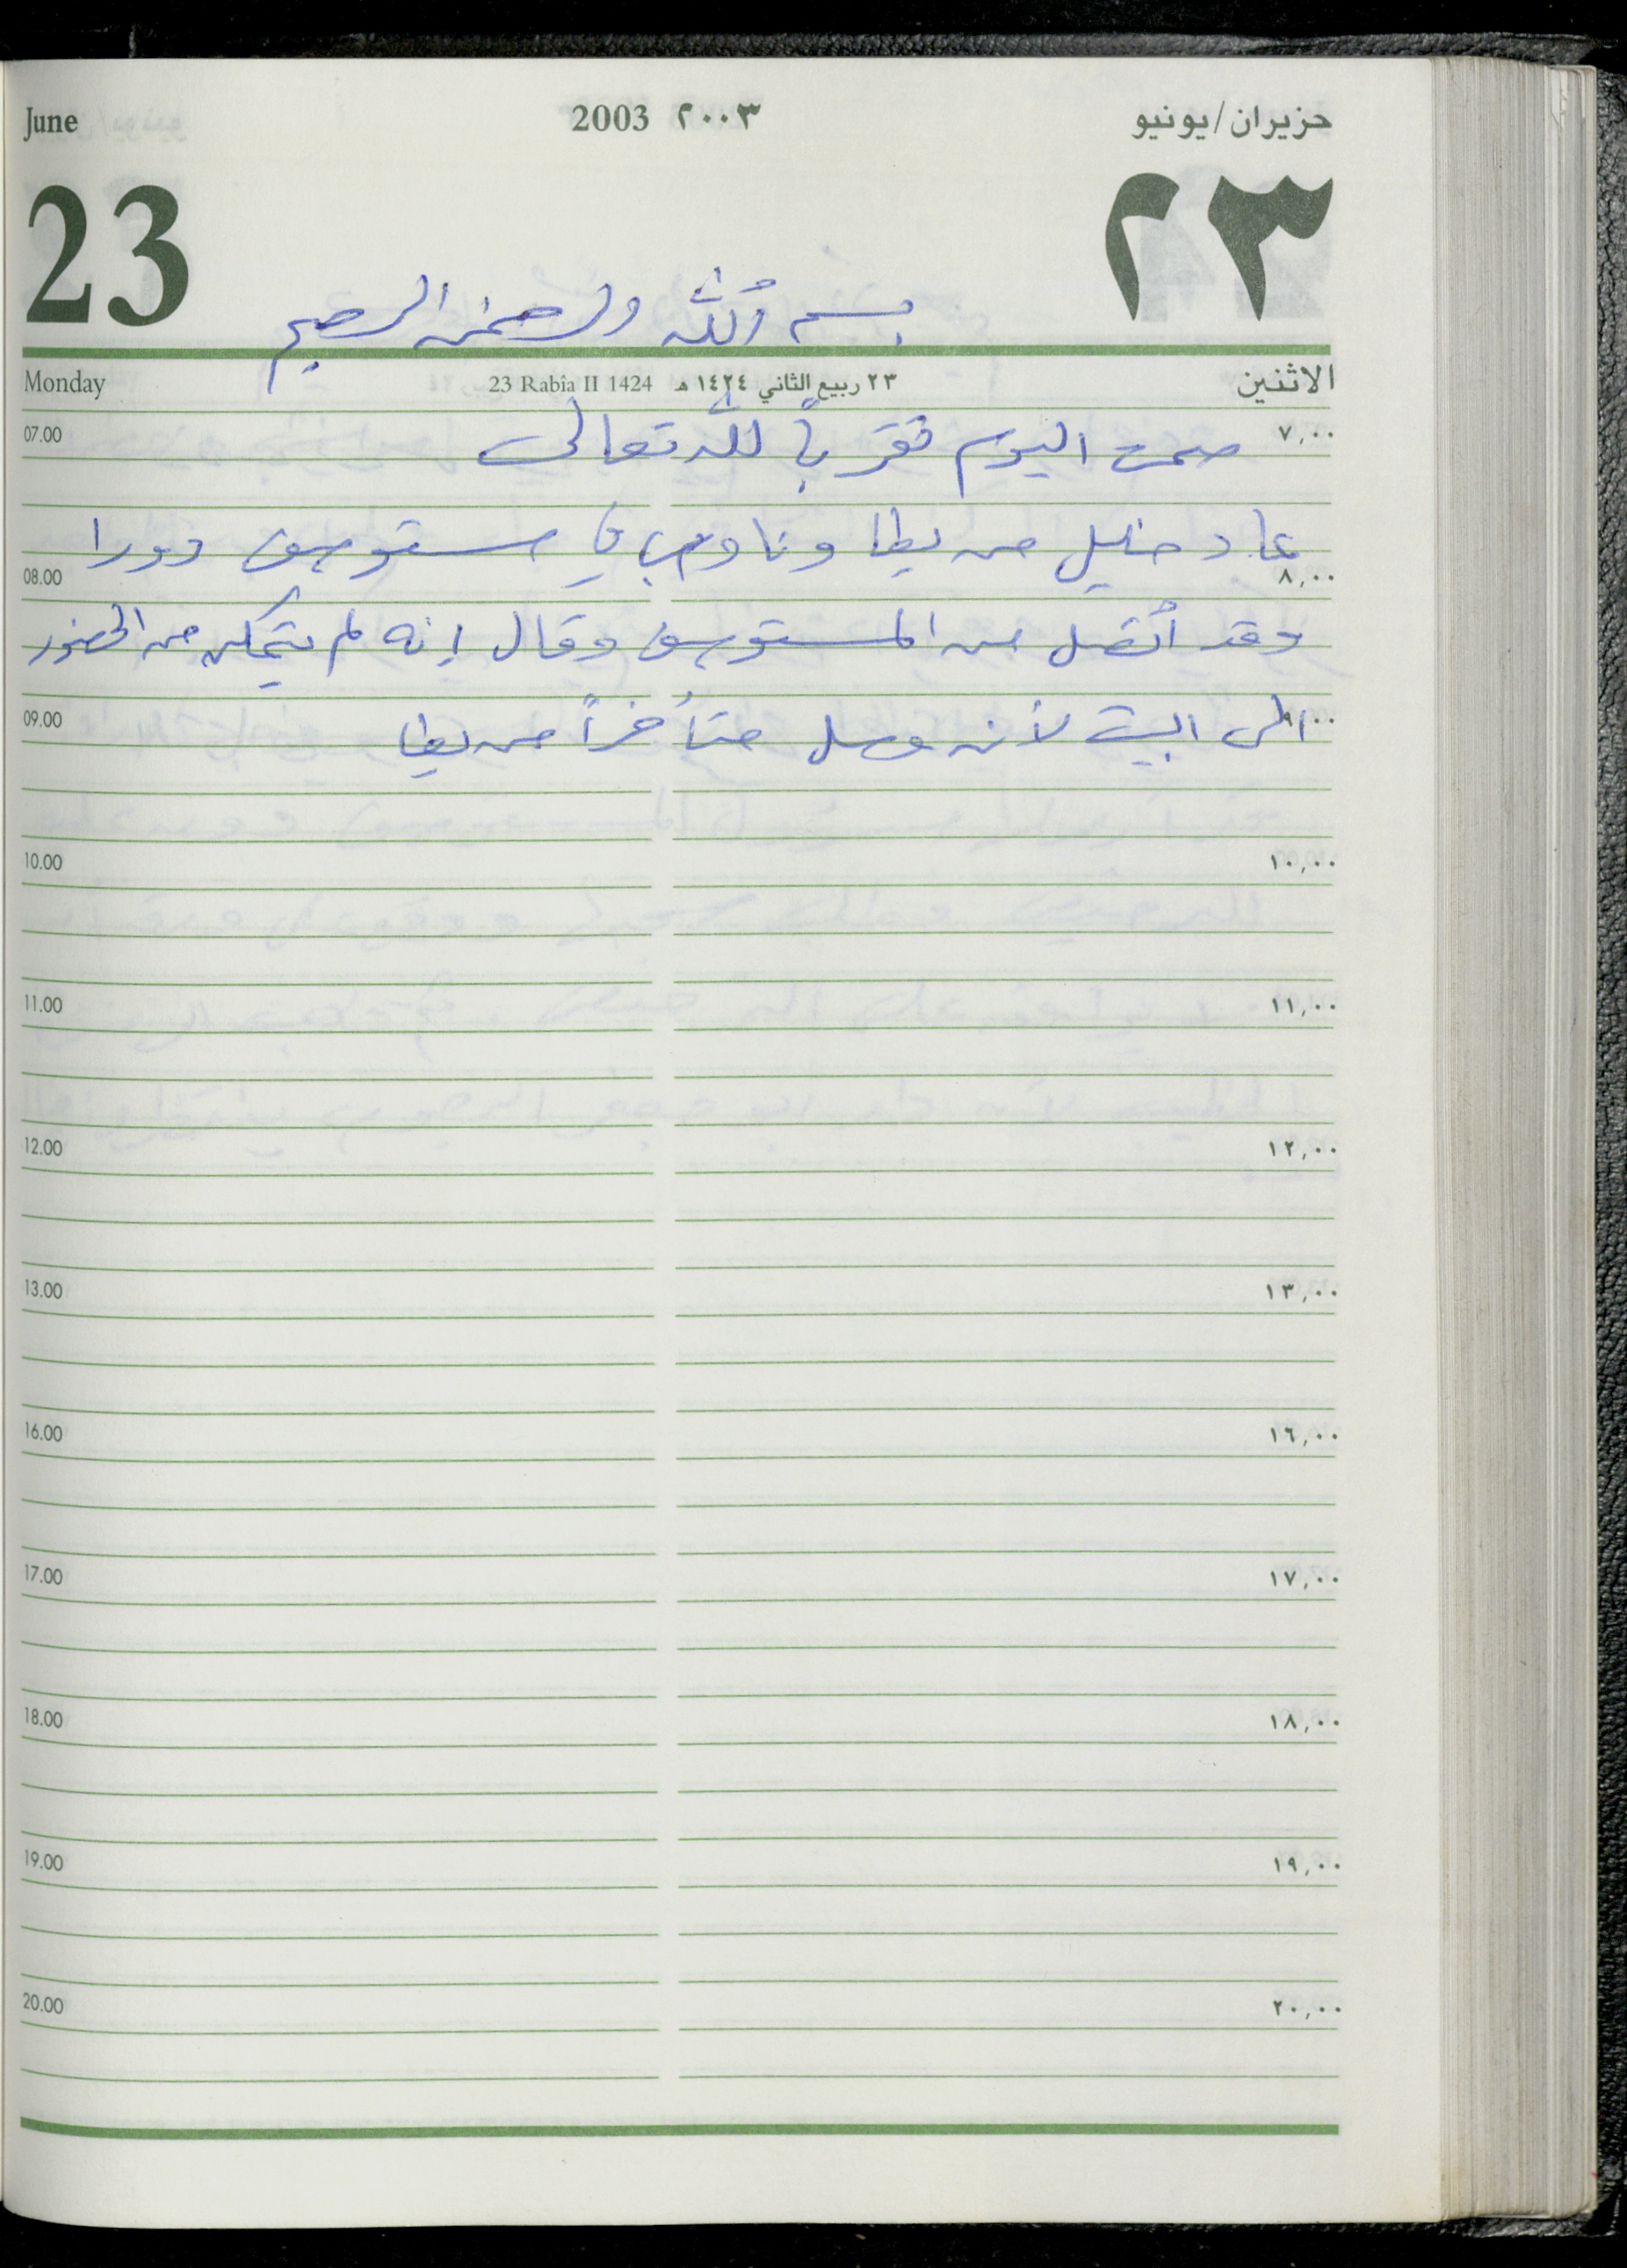 June 2003 ٢٠٠٣ حزيران/يونيو
23 ٢٣
بسم الله الرحمن الرحيم
Monday 23 Rabîa II 1424 ٢٣ ربيع الثاني ١٤٢٤ هـ الاثنين
07.00 صمت اليوم تقرباً لله تعالى ٧,٠٠
عاد خليل من يطا ونام في مستوصف دورا
08.00 ٨,٠٠
وقد أتصل من المستوصف وقال إنه لم يتمكن من الحضور
09.00 الى البيت لأنه وصل متأخراً من يطا ٩,٠٠
10.00 ١٠,٠٠
11.00 ١١,٠٠
12.00 ١٢,٠٠
13.00 ١٣,٠٠
16.00 ١٦,٠٠
17.00 ١٧,٠٠
18.00 ١٨,٠٠
19.00 ١٩,٠٠
20.00 ٢٠,٠٠